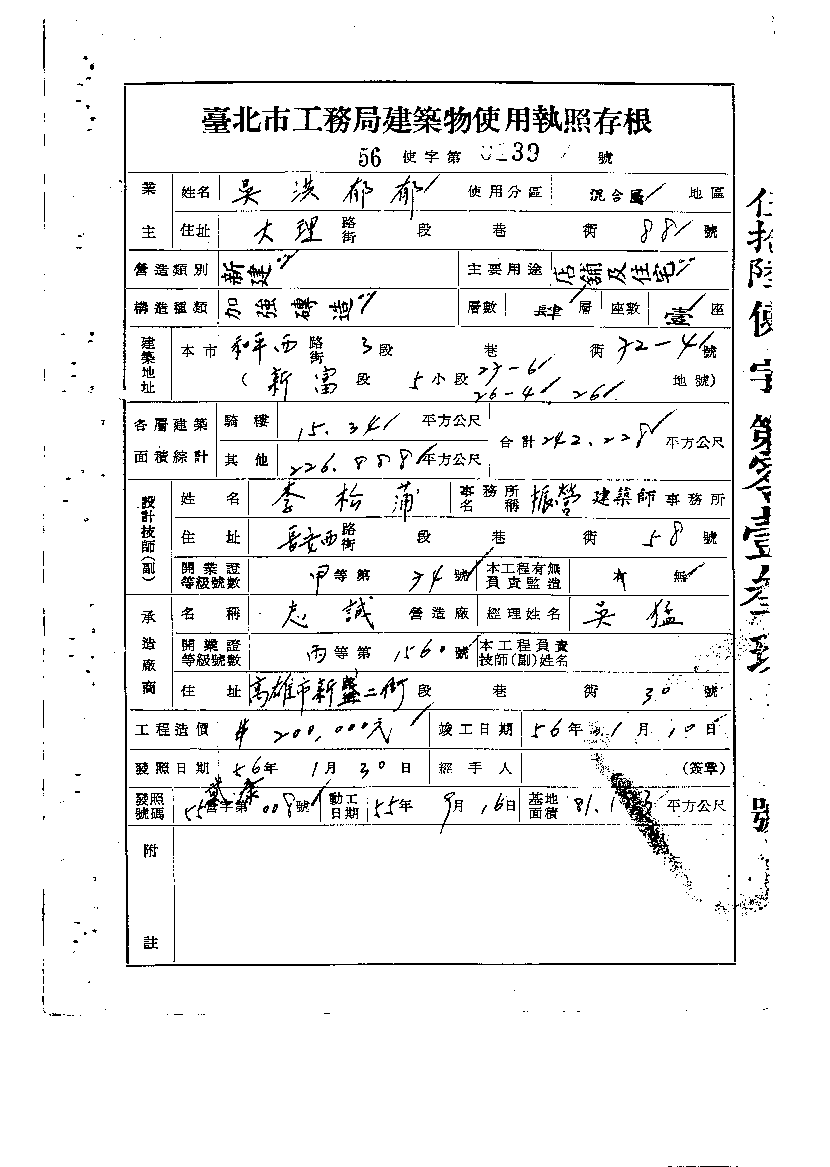 臺北市工務局建築物使用執照存根
56 使字第 0139 號
業主 姓名 吳洪郁郁 使用分區 混合區 地區
住址 大理 路街 段 巷 街 88 號
營造類別 新建 主要用途 店舖及住宅
構造種類 加強磚造 層數 層 座數 壹 座
建築地址 本市 和平西 路街 3 段 巷 街 72-4 號
(新富 段 5 小段 27-6 26-4, 26 地號)
各層建築面積綜計 騎樓 15.34 平方公尺 合計 242.228 平方公尺
其他 226.888 平方公尺
設計技師(副) 姓名 李松蒲 事務所名稱 振營 建築師事務所
住址 長安西 路街 段 巷 街 58 號
開業證等級號數 甲 等第 74 號 本工程有無負責監造 有 無
承造廠商 名稱 志誠 營造廠 經理姓名 吳猛
開業證等級號數 丙 等第 1560 號 本工程負責技師(副)姓名
住址 高雄市新盛二街 段 巷 街 30 號
工程造價 # 200,000元 竣工日期 56年 1月10日
發照日期 56年 1月30日 經手人 (簽章)
發照號碼 55 營字第 008 號 動工日期 55年 9月16日 基地面積 81.1 平方公尺
附註
伍拾陸使字第零壹叁玖號